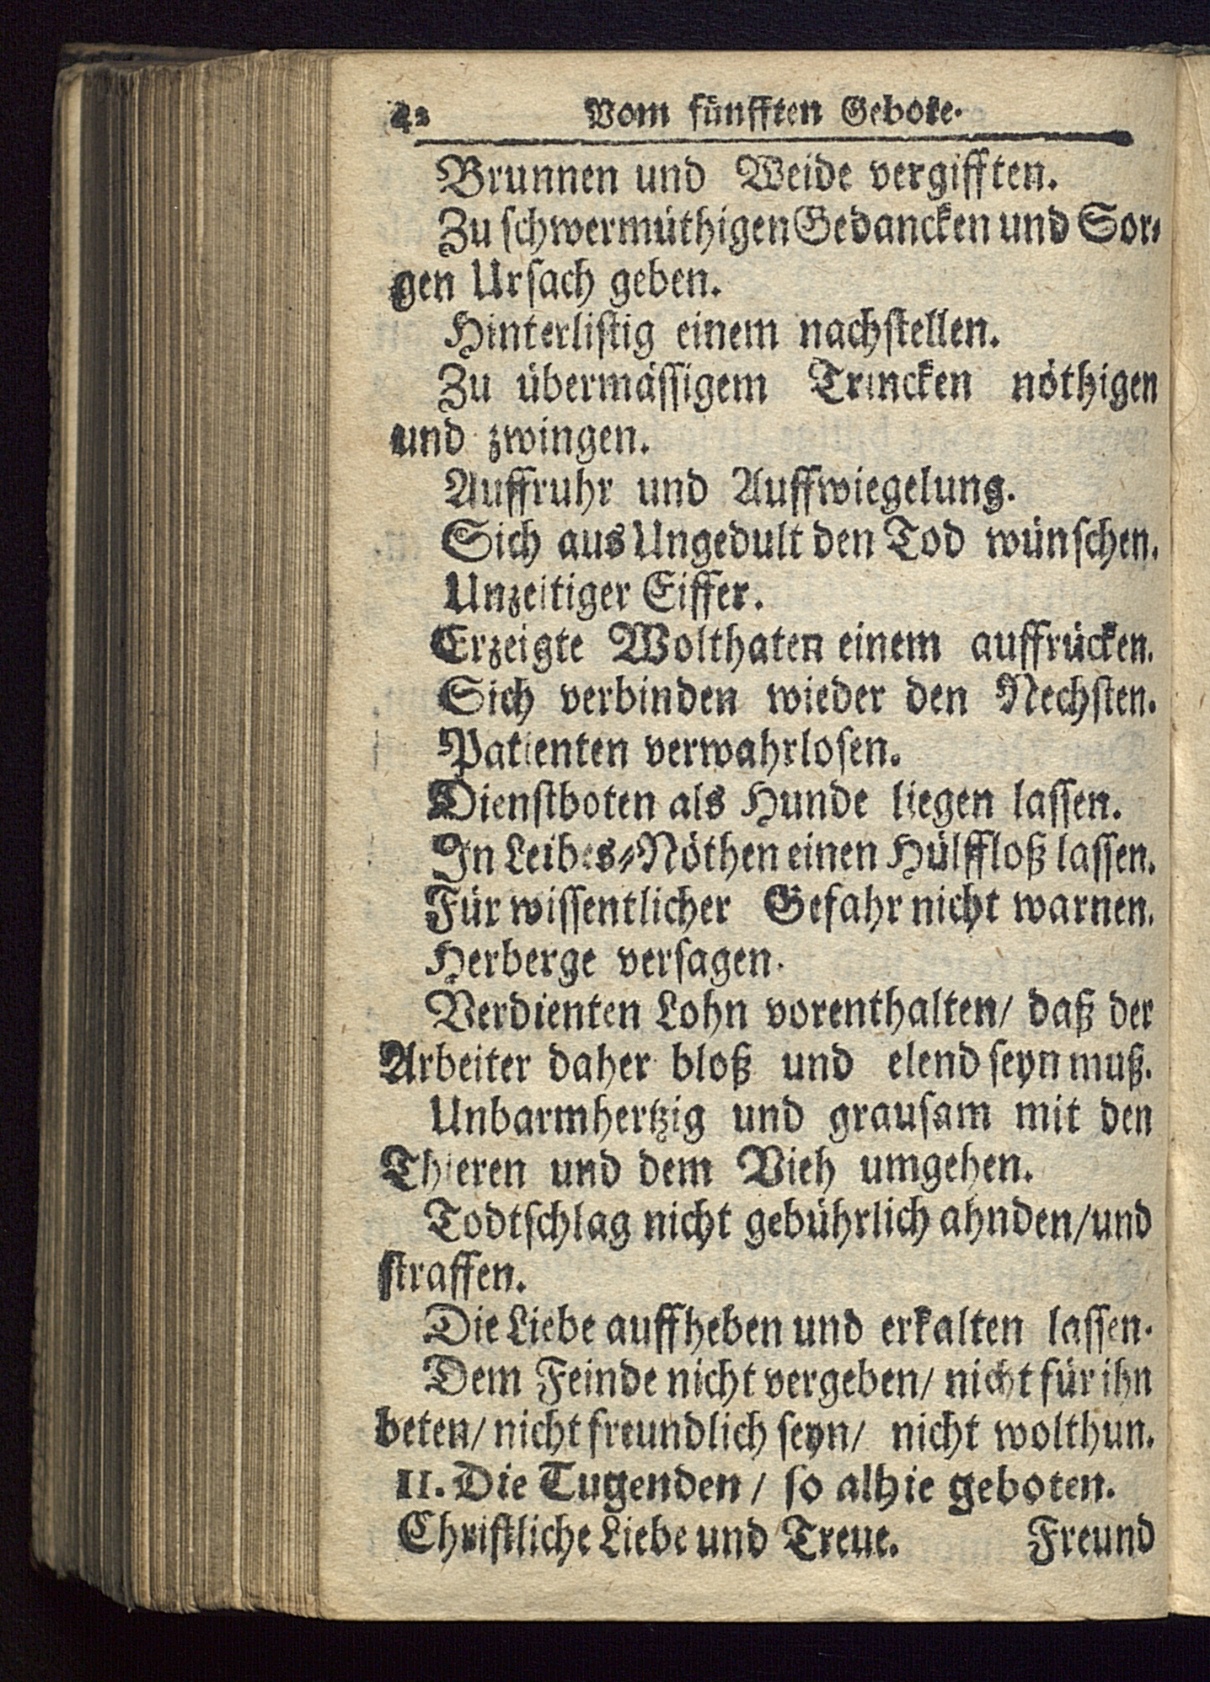 42 Vom fünfften Gebote.
Brunnen und Weide vergifften.
Zu schwermüthigen Gedancken und Sor⸗
gen Ursach geben.
Hinterlistig einem nachstellen.
Zu übermässigem Trincken nöthigen
und zwingen.
Auffruhr und Auffwiegelung.
Sich aus Ungedult den Tod wünschen.
Unzeitiger Eiffer.
Erzeigte Wolthaten einem auffrücken.
Sich verbinden wieder den Nechsten.
Patienten verwahrlosen.
Dienstboten als Hunde liegen lassen.
In Leibes⸗Nöthen einen Hülffloß lassen.
Für wissentlicher Gefahr nicht warnen.
Herberge versagen.
Verdienten Lohn vorenthalten/ daß der
Arbeiter daher bloß und elend seyn muß.
Unbarmhertzig und grausam mit den
Thieren und dem Vieh umgehen.
Todtschlag nicht gebührlich ahnden/und
straffen.
Die Liebe auffheben und erkalten lassen.
Dem Feinde nicht vergeben/ nicht für ihn
beten/ nicht freundlich seyn/ nicht wolthun.
II. Die Tugenden / so alhie geboten.
Christliche Liebe und Treue. Freund